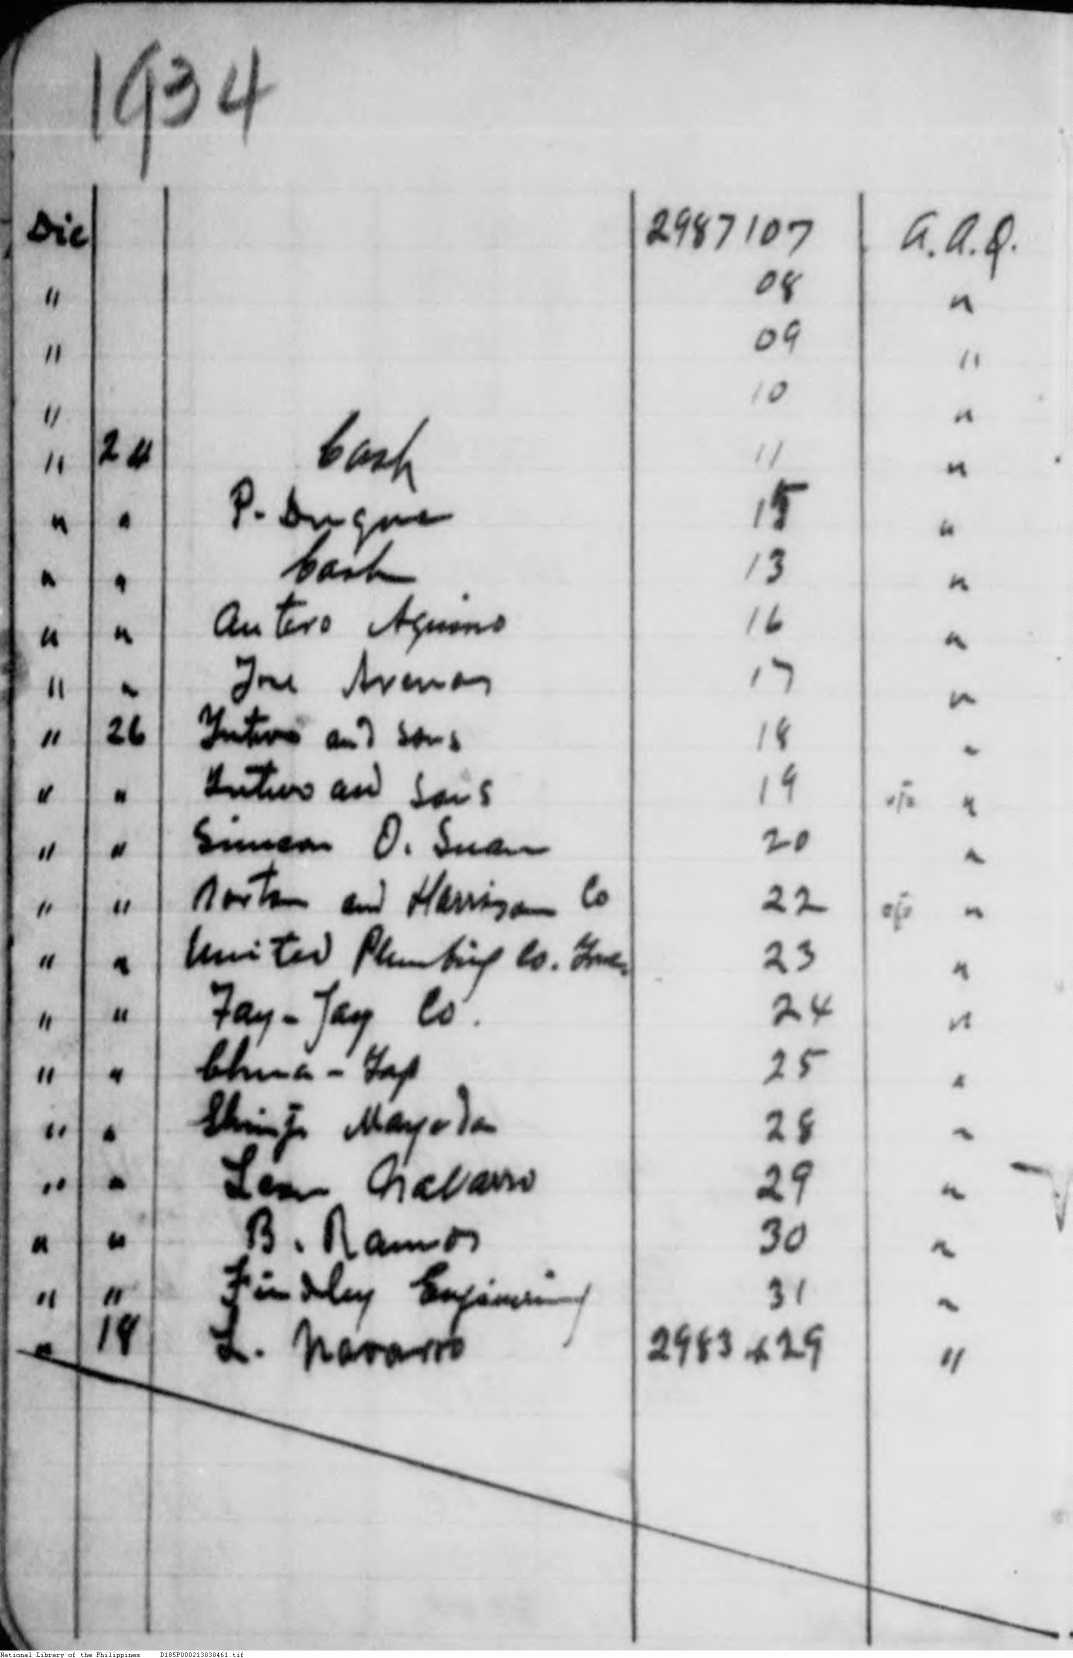 1934
Dic 2987107 A.A.Q.
" 08 "
" 09 "
" 10 "
" 24 Cash 11 "
" " P. Duque 15 "
" " Cash 13 "
" " Antero Aquino 16 "
" " Jose Arenas 17 "
" 26 Yutivo and Sons 18 "
" " Yutivo and Sons 19 o/p "
" " Simeon O. Suan 20 "
" " Norton and Harrison Co 22 o/p "
" " United Plumbing Co. Inc. 23 "
" " Fay-Jay Co. 24 "
" " China-Yap 25 "
" " Shinji Mayeda 28 "
" " Leon Navarro 29 "
" " B. Ramos 30 "
" " Findley Engineering 31 "
" 18 L. Navarro 2983 29 "
National Library of the Philippines D185P000213830461.tif